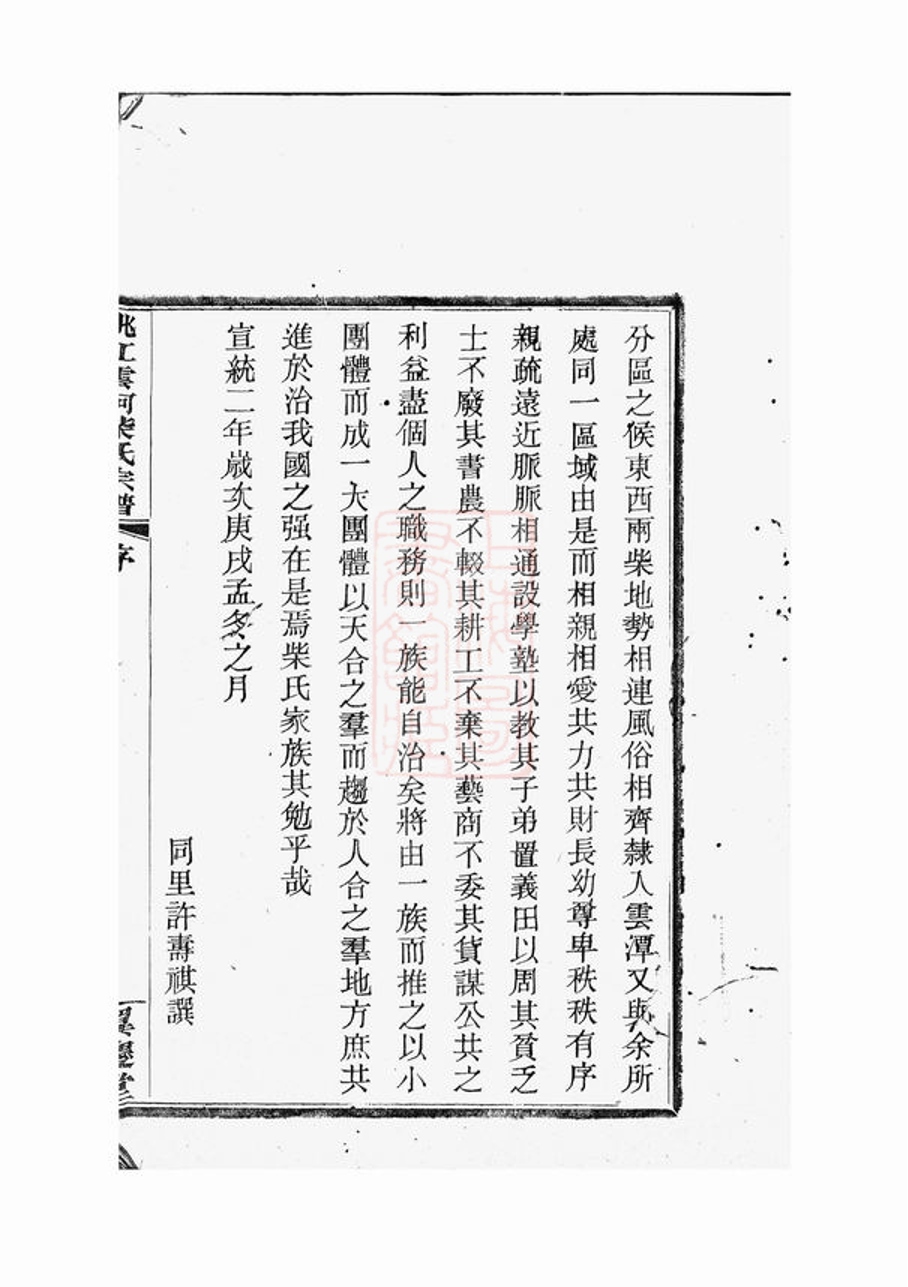 分區之候東西兩柴地勢相連風俗相齊隸入雲潭又與余所
處同一區域由是而相親相愛共力共財長幼尊卑秩秩有序
親疏遠近脈脈相通設學塾以教其子弟置義田以周其貧乏
士不廢其書農不輟其耕工不棄其藝商不委其貨謀公共之
利益盡個人之職務則一族能自治矣將由一族而推之以小
團體而成一大團體以天合之羣而趨於人合之羣地方庶共
進於治我國之强在是焉柴氏家族其勉乎哉
宣統二年歲次庚戌孟冬之月
同里許壽祺譔
姚江雲柯柴氏宗譜
序